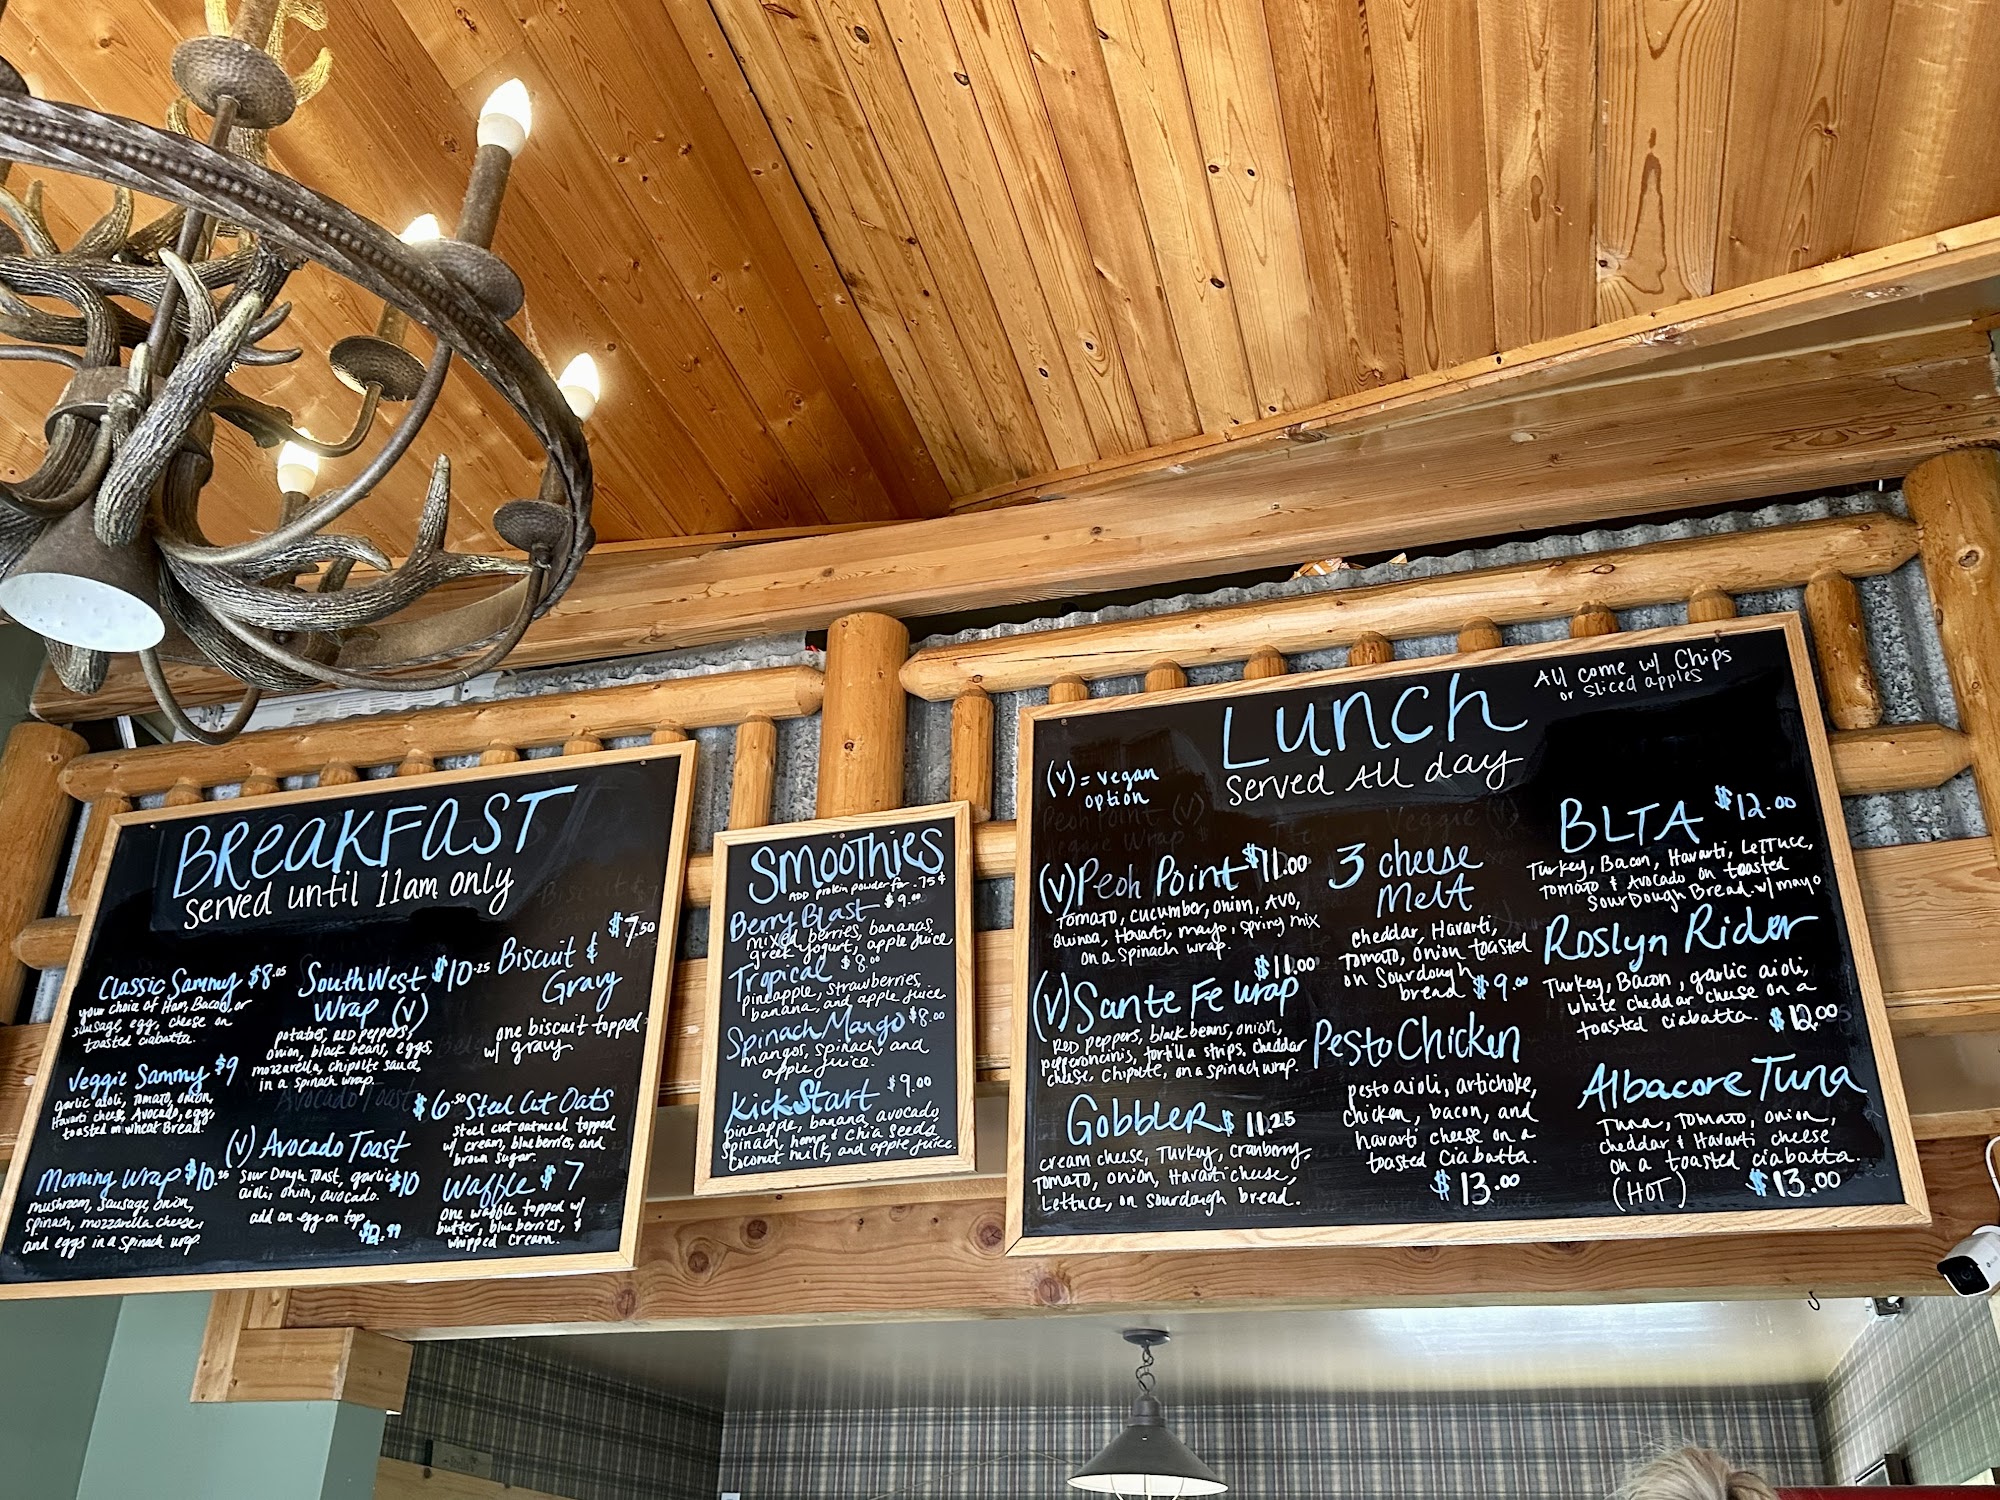 BREAKFAST
served until 11am only
Classic Sammy $8.05
your choice of Ham, Bacon, or
sausage, egg, cheese on
toasted ciabatta.
Veggie Sammy $9
garlic aioli, tomato, onion,
Havarti cheese, Avocado, egg,
toasted on wheat Bread.
Morning Wrap $10.25
mushroom, sausage, onion,
spinach, mozzarella cheese,
and eggs in a spinach wrap.
SouthWest $10.25
Wrap (V)
potatoes, RED peppers,
onion, black beans, eggs,
mozzarella, chipotle sauce,
in a spinach wrap.
(V) Avocado Toast
Sour Dough Toast, garlic $10
aioli, onion, avocado.
add an egg on top
Biscuit & $7.50
Gravy
one biscuit topped
w/ gravy.
$6.50 Steel Cut Oats
steel cut oatmeal topped
w/ cream, blueberries, and
brown sugar.
Waffle $7
one waffle topped w/
butter, blueberries, &
whipped cream.
Smoothies
ADD protein powder for .75¢
Berry Blast $9.00
mixed berries, bananas,
greek yogurt, apple juice
Tropical $8.00
pineapple, strawberries,
banana, and apple juice
Spinach Mango $8.00
mangos, spinach, and
apple juice.
KickStart $9.00
pineapple, banana, avocado,
spinach, hemp & chia seeds,
coconut milk, and apple juice.
Lunch
Served All day
All come w/ Chips
or sliced apples
(V) = vegan
option
(V) Peoh Point $11.00
Tomato, cucumber, onion, Avo,
Quinoa, Havarti, mayo, spring mix
on a spinach wrap.
$11.00
(V) Sante Fe Wrap
RED peppers, black beans, onion,
pepperoncinis, tortilla strips, cheddar
cheese, Chipotle, on a spinach wrap.
Gobbler $11.25
cream cheese, Turkey, cranberry,
Tomato, onion, Havarti cheese,
Lettuce, on sourdough bread.
3 cheese
Melt
cheddar, Havarti,
Tomato, onion toasted
on Sourdough
bread $9.00
Pesto Chicken
pesto aioli, artichoke,
chicken, bacon, and
havarti cheese on a
toasted Ciabatta.
$13.00
BLTA $12.00
Turkey, Bacon, Havarti, Lettuce,
tomato & Avocado on toasted
SourDough Bread w/ mayo
Roslyn Rider
Turkey, Bacon, garlic aioli,
white cheddar cheese on a
toasted ciabatta. $12.00
Albacore Tuna
Tuna, Tomato, onion,
cheddar & Havarti cheese
on a toasted ciabatta.
(HOT) $13.00